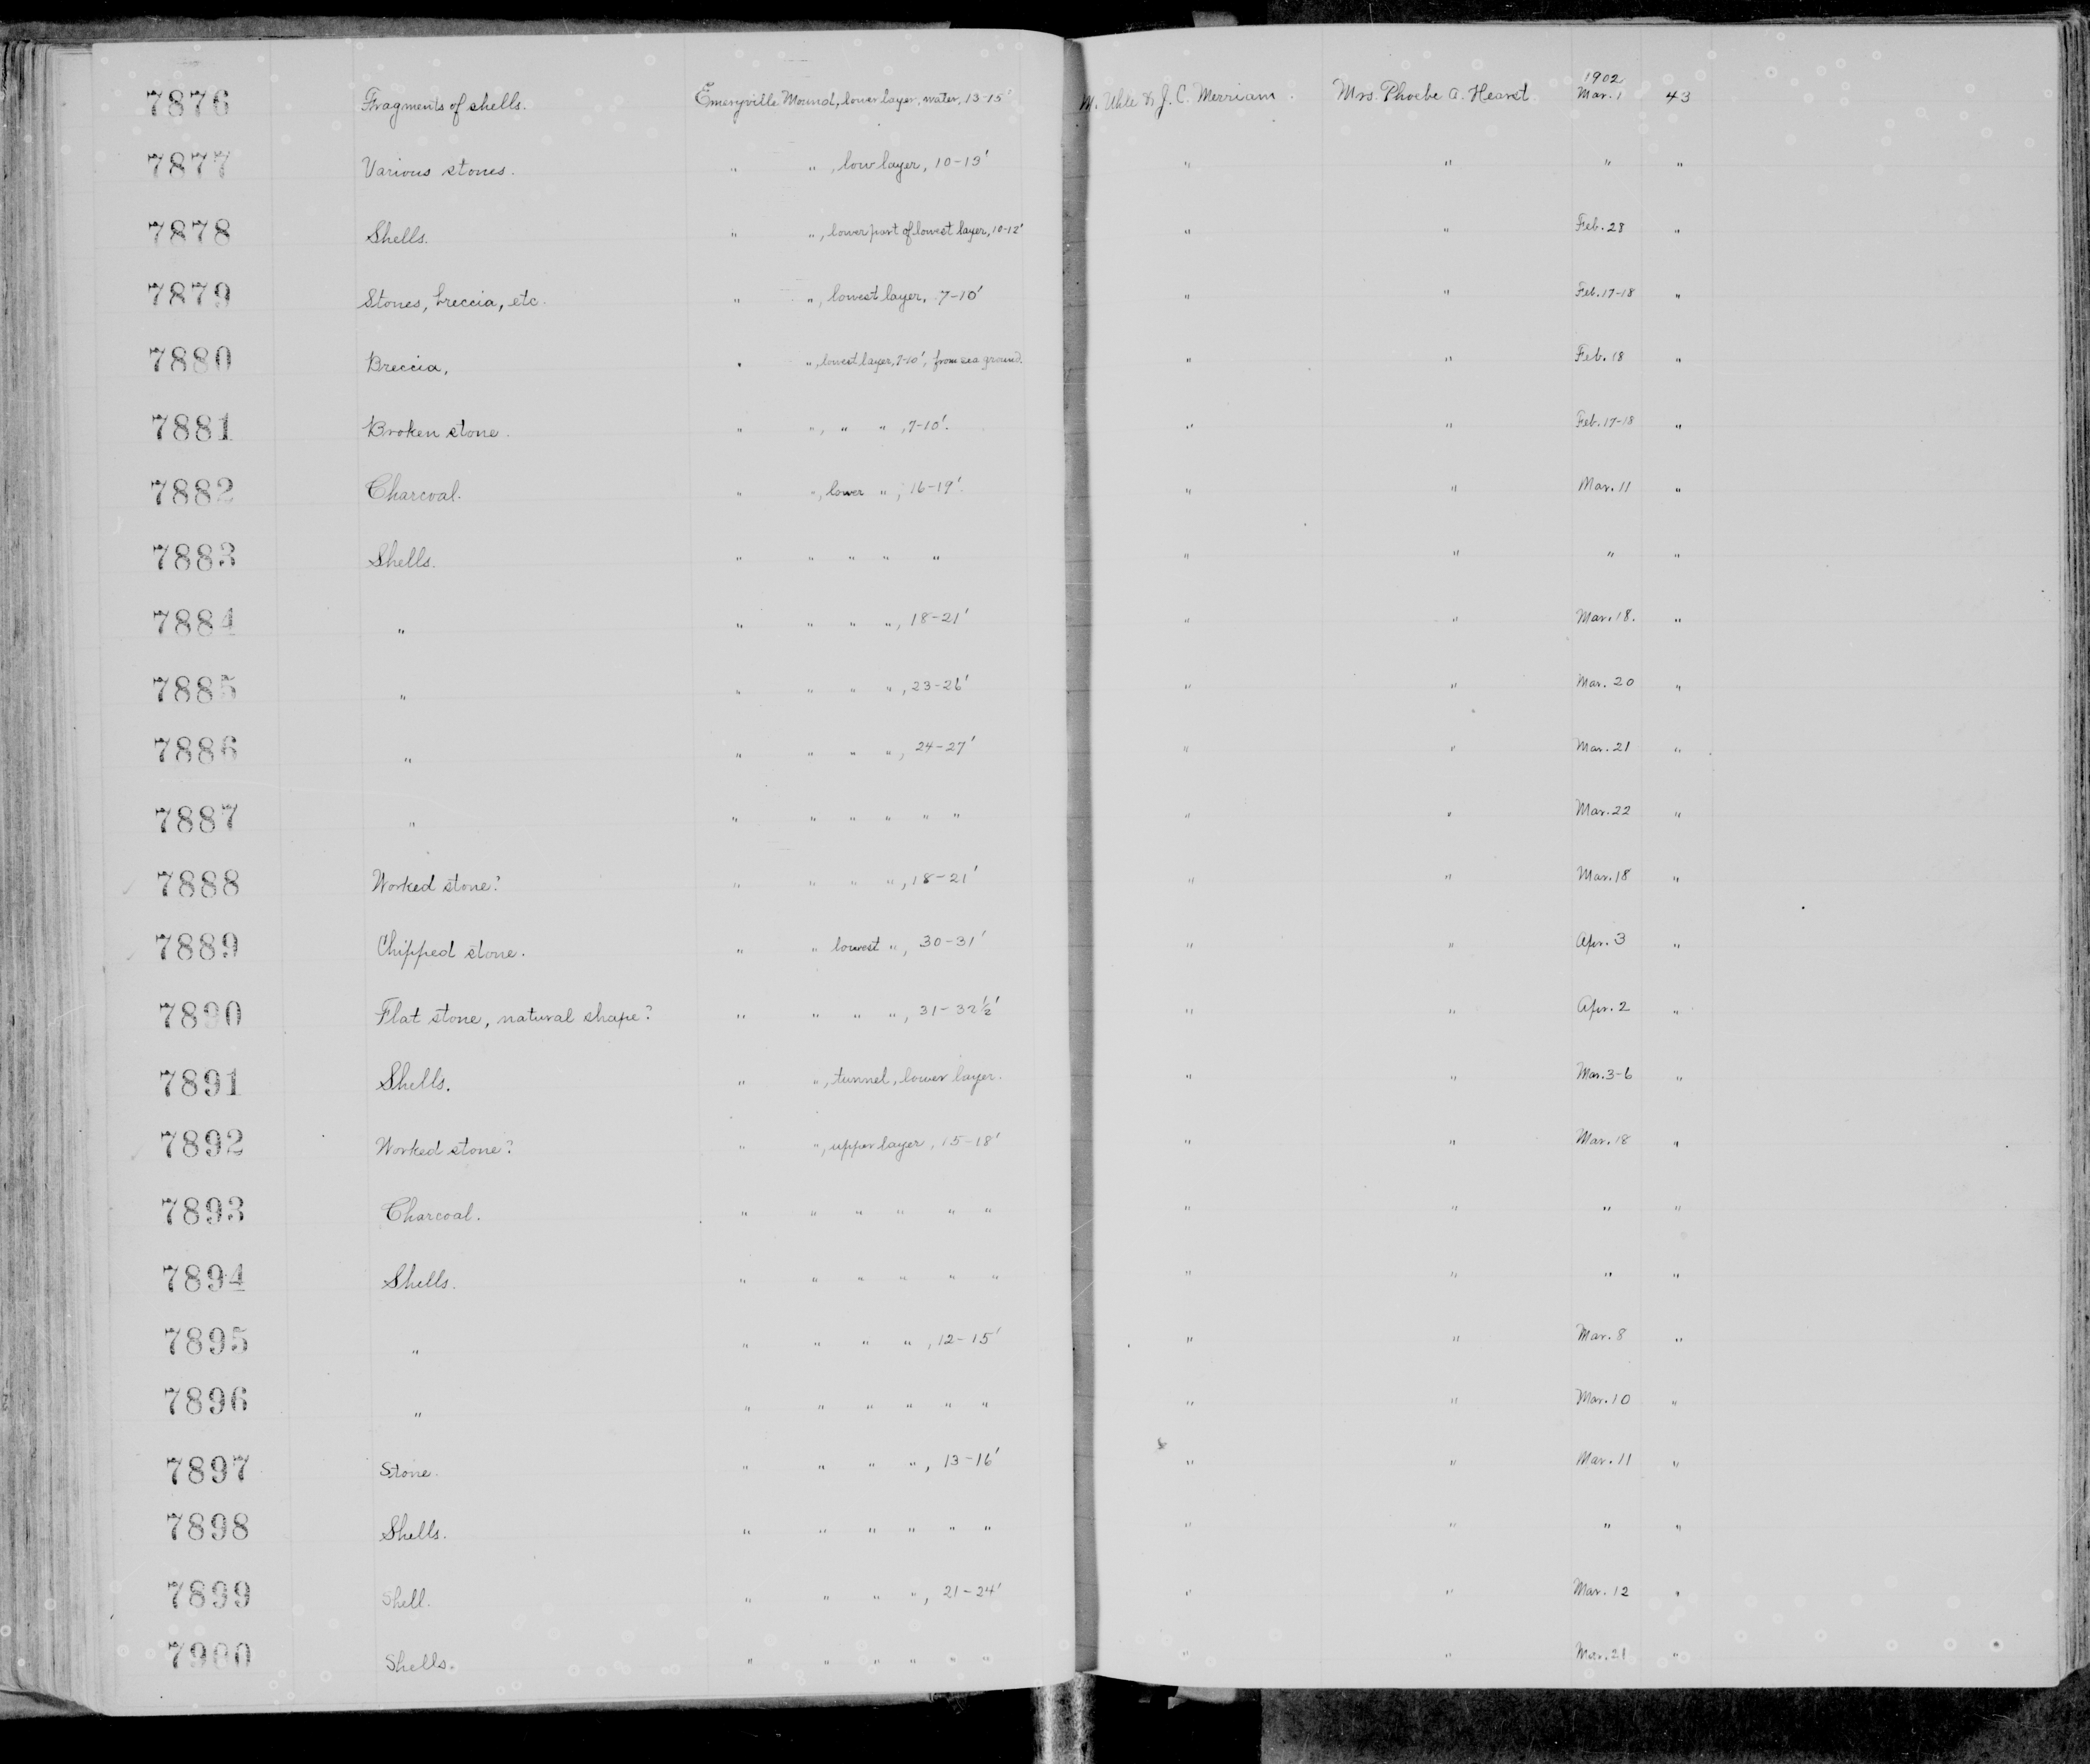 7876 Fragments of shells. Emeryville Mound, lower layer, water, 13-15' M. Uhle & J. C. Merriam. Mrs. Phoebe A. Hearst 1902 Mar. 1 43
7877 Various stones. " " , low layer, 10-13' " " " "
7878 Shells. " " , lower part of lowest layer, 10-12' " " Feb. 28 "
7879 Stones, breccia, etc. " " , lowest layer, 7-10' " " Feb. 17-18 "
7880 Breccia, " " , lowest layer, 7-10', from sea ground. " " Feb. 18 "
7881 Broken stone. " " , " " , 7-10'. " " Feb. 17-18 "
7882 Charcoal. " " , lower " , 16-19'. " " Mar. 11 "
7883 Shells. " " " " " " " " "
7884 " " " " " , 18-21' " " Mar. 18. "
7885 " " " " " , 23-26' " " Mar. 20 "
7886 " " " " " , 24-27' " " Mar. 21 "
7887 " " " " " " " " " Mar. 22 "
7888 Worked stone? " " " " , 18-21' " " Mar. 18 "
7889 Chipped stone. " " lowest " , 30-31' " " Apr. 3 "
7890 Flat stone, natural shape? " " " " , 31-32½' " " Apr. 2 "
7891 Shells. " " , tunnel, lower layer. " " Mar. 3-6 "
7892 Worked stone? " " , upper layer, 15-18' " " Mar. 18 "
7893 Charcoal. " " " " " " " " " "
7894 Shells. " " " " " " " " " "
7895 " " " " " , 12-15' " " Mar. 8 "
7896 " " " " " " " " " Mar. 10 "
7897 Stone. " " " " , 13-16' " " Mar. 11 "
7898 Shells. " " " " " " " " " "
7899 Shell. " " " " , 21-24' " " Mar. 12 "
7900 Shells. " " " " " " " " Mar. 21 "